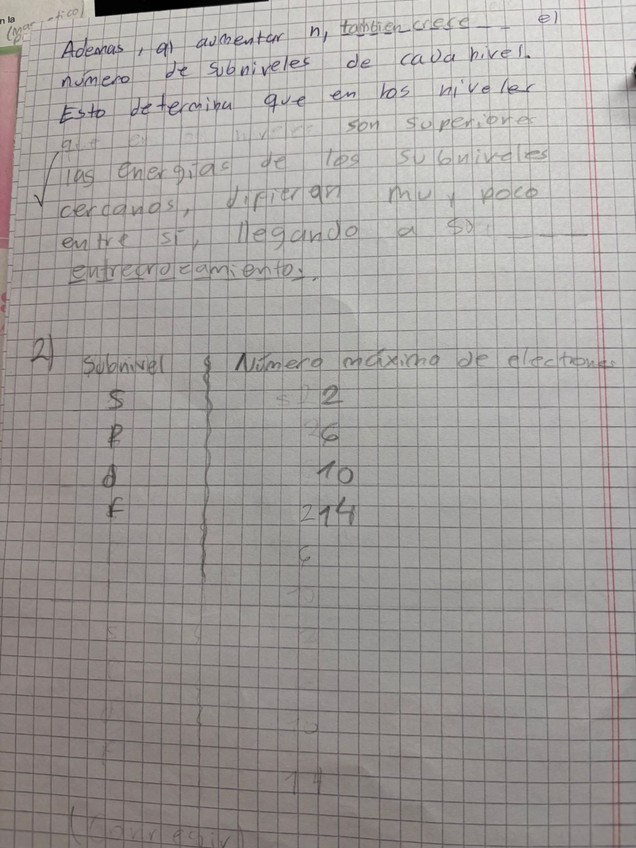 Ademas, al aumentar n, tambien crese el
número de subniveles de cada nivel.
Esto determina que en los niveles
son superiores
las energías de los subniveles
cercanos, difieran muy poco
entre sí, llegando a su
entrecruzamiento.
2) Subnivel Número máximo de electrones
s 2
p 6
d 10
f 14
6
14
(Corregir)